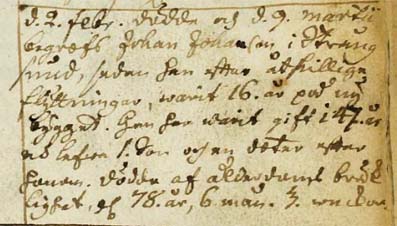 d. 2. febr. Dödde och d. 9. Martii
begrofs Johan Johansson i Strang
sund, sedan han efter åtskillige
flyttningar, warit 16. år på
bygget. han har warit gift i 47. år
och 1. son och en doter efter
honom. Dödde af ålderdoms bräck
lighet, 78. år, 6. mån. 3. weckor.